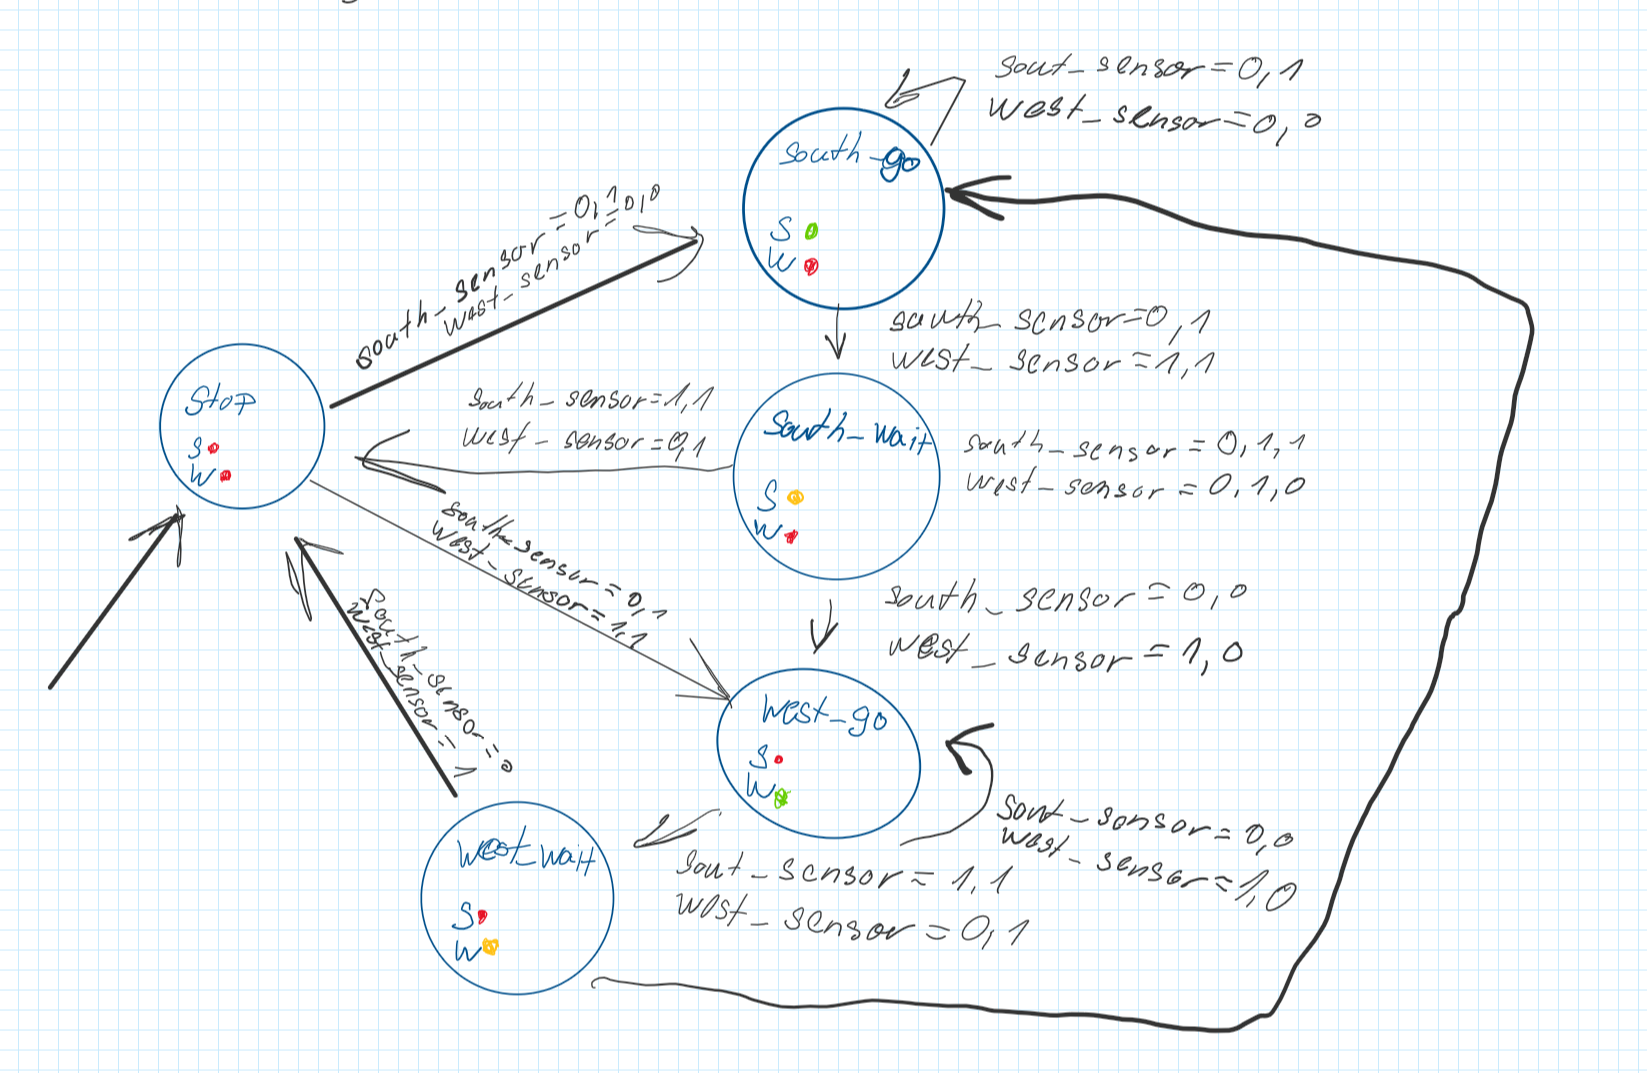 sout_sensor=0,1
west_sensor=0,0
south_go
S
W
south_sensor=0,1
west_sensor=0,0
south_sensor=0,1
west_sensor=1,1
Stop
S
W
south_sensor=1,1
west_sensor=0,1
South_wait
S
W
south_sensor=0,1,1
west_sensor=0,1,0
south_sensor=0,1
west_sensor=1,1
south_sensor=0,0
west_sensor=1,0
south_sensor=0
west_sensor=1
west_go
S
W
sout_sensor=0,0
west_sensor=1,0
west_wait
S
W
sout_sensor=1,1
west_sensor=0,1